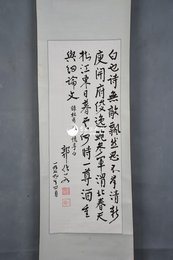 白也詩無敵飄然思不群清新
庾開府俊逸鮑參軍渭北春天
树江東日暮雲何時一尊酒重
與細論文 憶李白
郭沫若